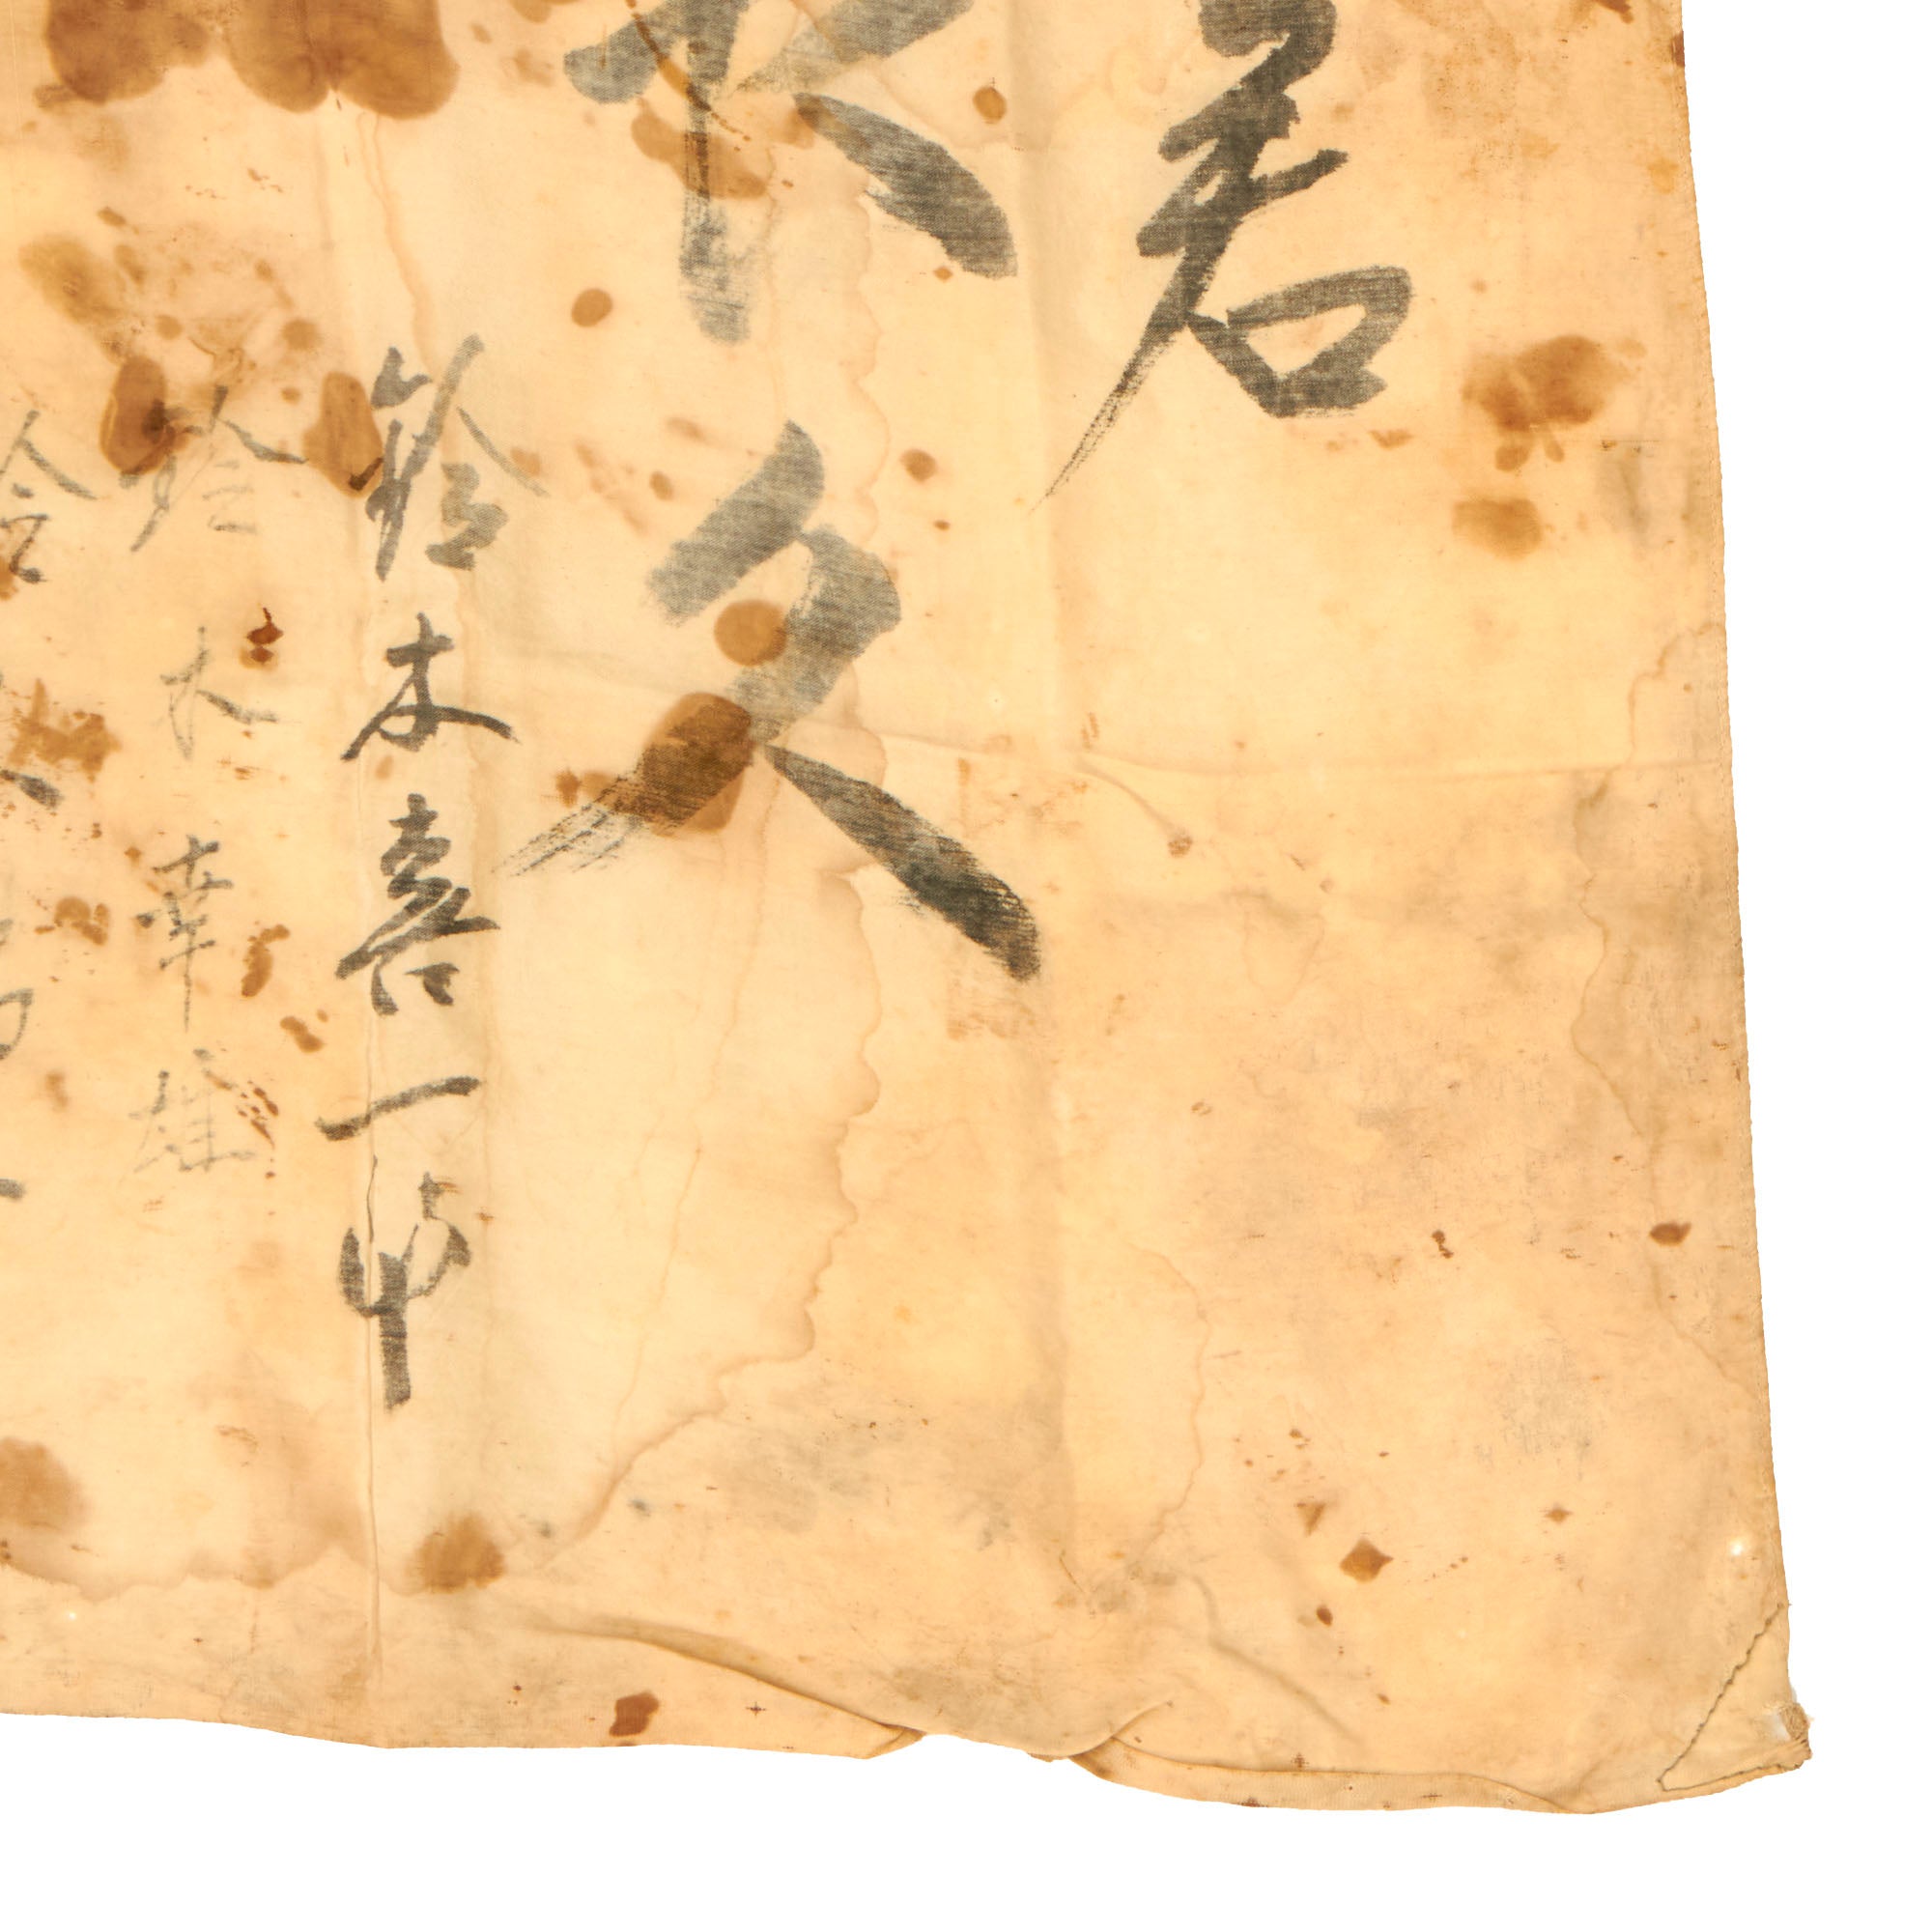 君
長久
鈴木喜一郎
鈴木幸雄